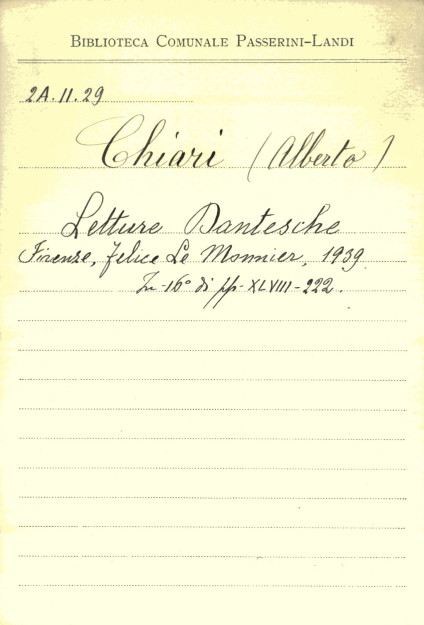 BIBLIOTECA COMUNALE PASSERINI-LANDI
2A.11.29
Chiari (Alberto)
Letture Dantesche
Firenze, Felice Le Monnier, 1939
In-16° di pp. XLVIII-222.